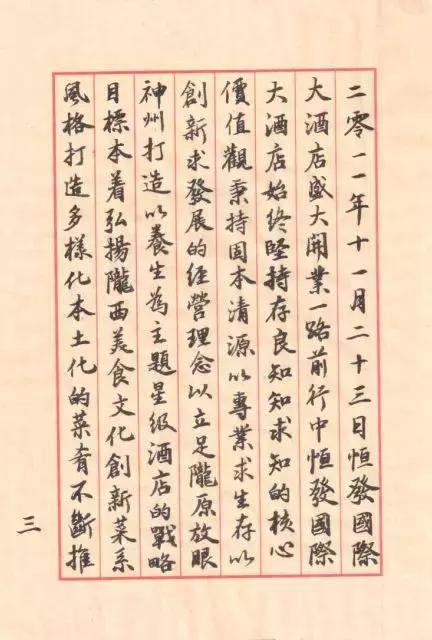 二零一一年十一月二十三日恒發國際
大酒店盛大開業一路前行中恒發國際
大酒店始終堅持存良知知求知的核心
價值觀秉持固本清源以專業求生存以
創新求發展的經營理念以立足隴原放眼
神州打造以養生為主題星級酒店的戰略
目標本着弘揚隴西美食文化創新菜系
風格打造多樣化本土化的菜肴不斷推
三